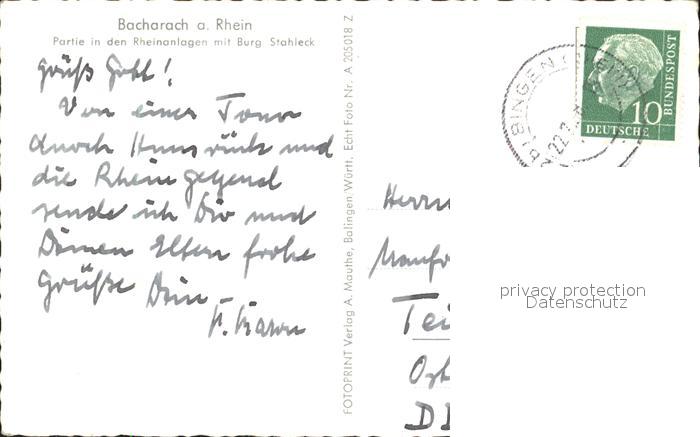 Bacharach a. Rhein
Partie in den Rheinanlagen mit Burg Stahleck
Grüß Gott!
Von einer Tour
durch Hunsrück und
die Rheingegend
sende ich Dir und
Deinen Eltern frohe
Grüße Dein
F.
FOTOPRINT Verlag A. Mauthe, Balingen/Württ. Echt Foto Nr. A 205018 Z
BINGEN
22.
10
DEUTSCHE
BUNDESPOST
Herrn
Manfr
Tei
D
privacy protection
Datenschutz